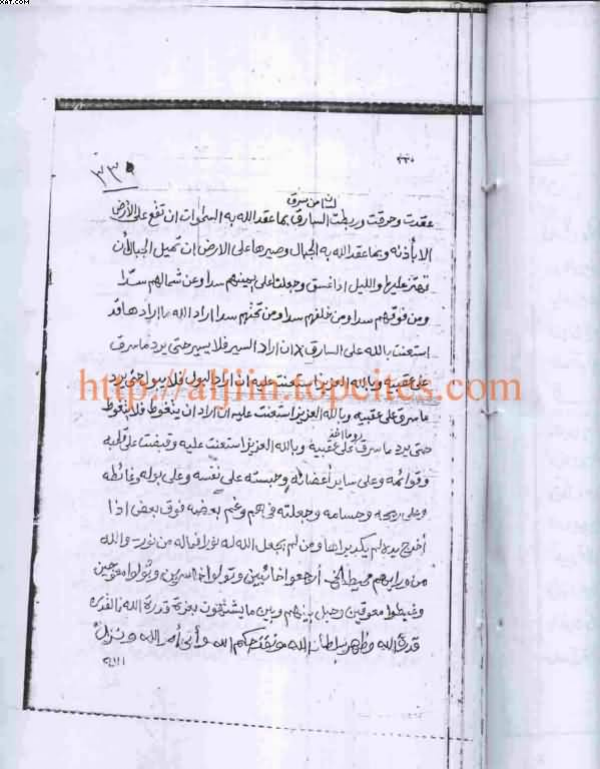 ٣٣٠
٣٣
الثامن سرق
عقدت وحرقت وربطت السارق بما عقد الله به السموات ان تقع على الأرض
الا بأذنه وبما عقد الله به الجبال وصيرها على الارض ان تميل الجبال ان
تهتز عليها والليل اذا غسق وجعلت على يمينهم سدا وعن شمالهم سدا
ومن فوقهم سدا ومن خلفهم سدا ومن تحتهم سدا اراد الله ما اراد ها قد
استعنت بالله على السارق ان اراد السير فلا يسير حتى يرد ما سرق
على عقبية وبالله العزيز استعنت عليه ان اراد البول فلا يبول حتى يرد
ما سرق على عقبيه وبالله العزيز استعنت عليه ان اراد ان يتغوط فلا يتغوط
حتى يرد ما سرق على عقبية وبالله العزيز استعنت عليه وقبضت على قلبه
وقوائمه وعلى ساير أعضائه وحبسته على نفسه وعلى بوله وغائطه
وعلى ريحه وحسامه وجعلته في هم وغم بعضه فوق بعض اذا
أخرج يده لم يكد يراها ومن لم يجعل الله له نورا فماله من نور والله
من ورايهم محيط ارجعوا خائبين وتولوا خاسرين وتولوا
وحيل بينهم وبين ما يشتهون بعزة قدرة الله
قدرة الله وظهر سلطان الله ونفذ حكم الله وأتى أمر الله ونزل
http://aljiin.topcites.com
xat.com